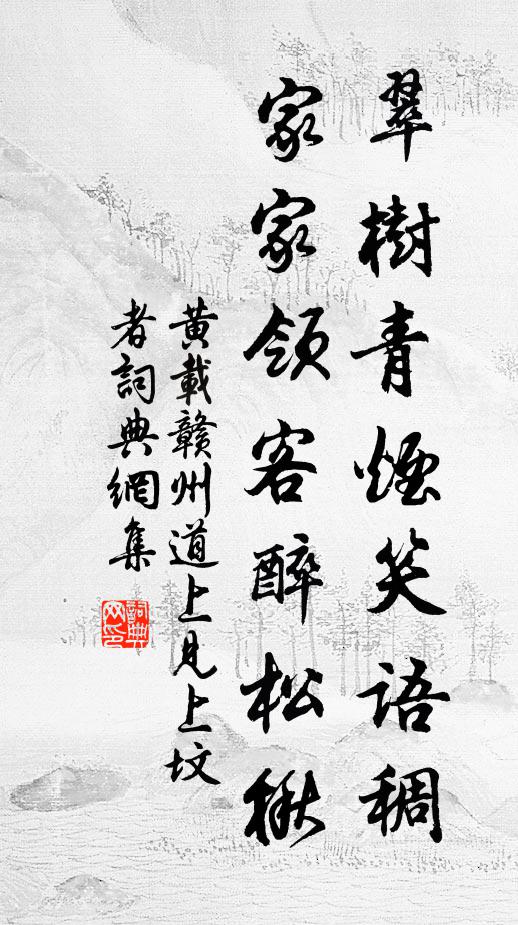 翠樹青煙笑語稠
家家領客醉松楸
黃載贛州道上見上坟
者詞典網集
詞典网印